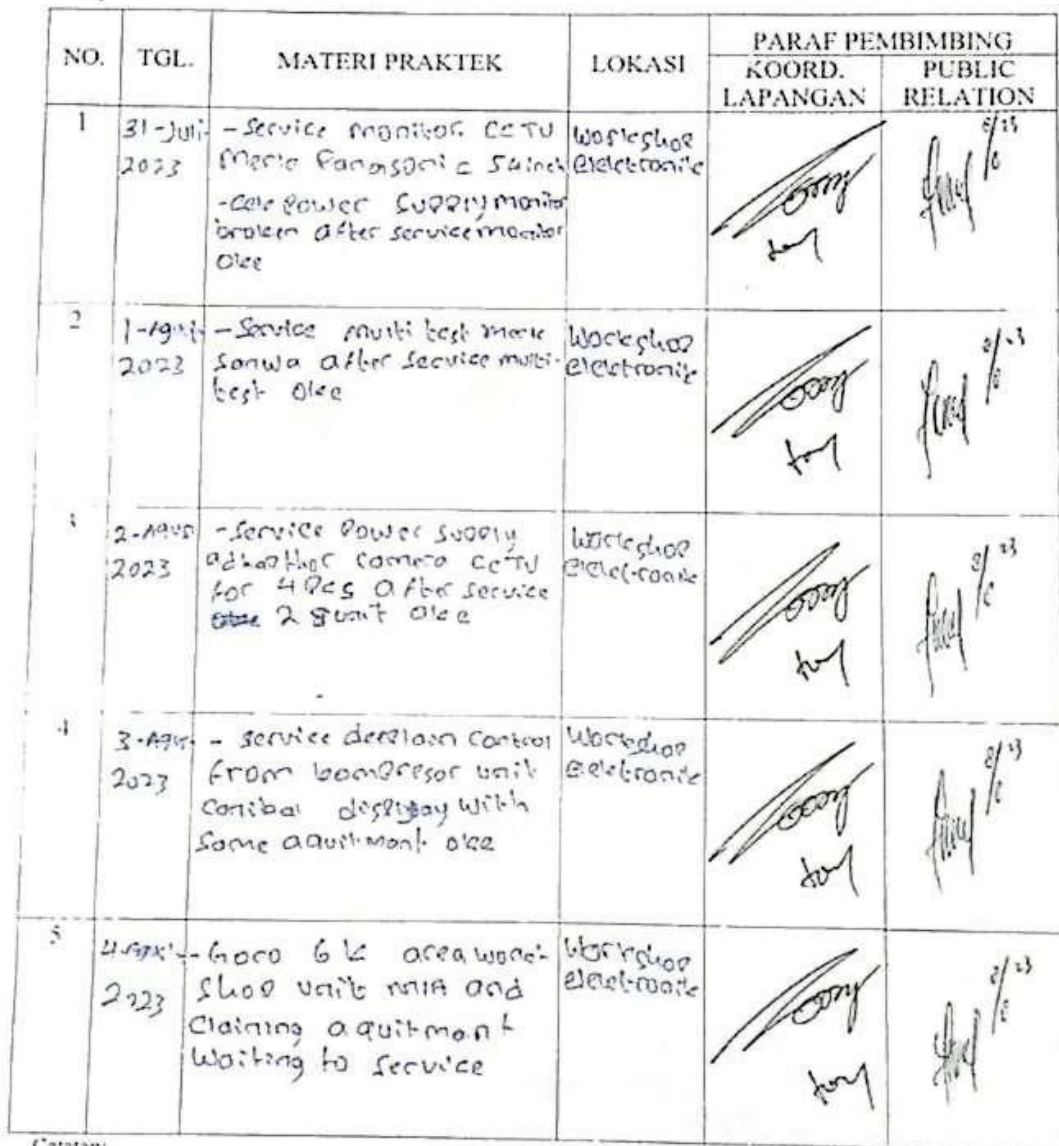 NO. TGL. MATERI PRAKTEK LOKASI PARAF PEMBIMBING
KOORD. LAPANGAN PUBLIC RELATION
1 31-Juli- 2023
- Service monitor CCTV
Merk Panasonic 54 inch
- Cek Power Supply monitor
broken after service monitor
oke
Workshop
elektronik
2 1-Agus- 2023
- Service multi test merk
sanwa after service multi-
test oke
Workshop
elektronik
3 2-Agus 2023
- Service Power Supply
adhapthor camera CCTV
for 4 Pcs after service
2 unit oke
Workshop
elektronik
4 3-Agus- 2023
- service control
from unit
display with
some aquitmant oke
Workshop
elektronik
5 4- 2023
- Goro 6 K area work-
shop unit and
Claining aquitmant
Waiting to service
Workshop
elektronik
Catatan: